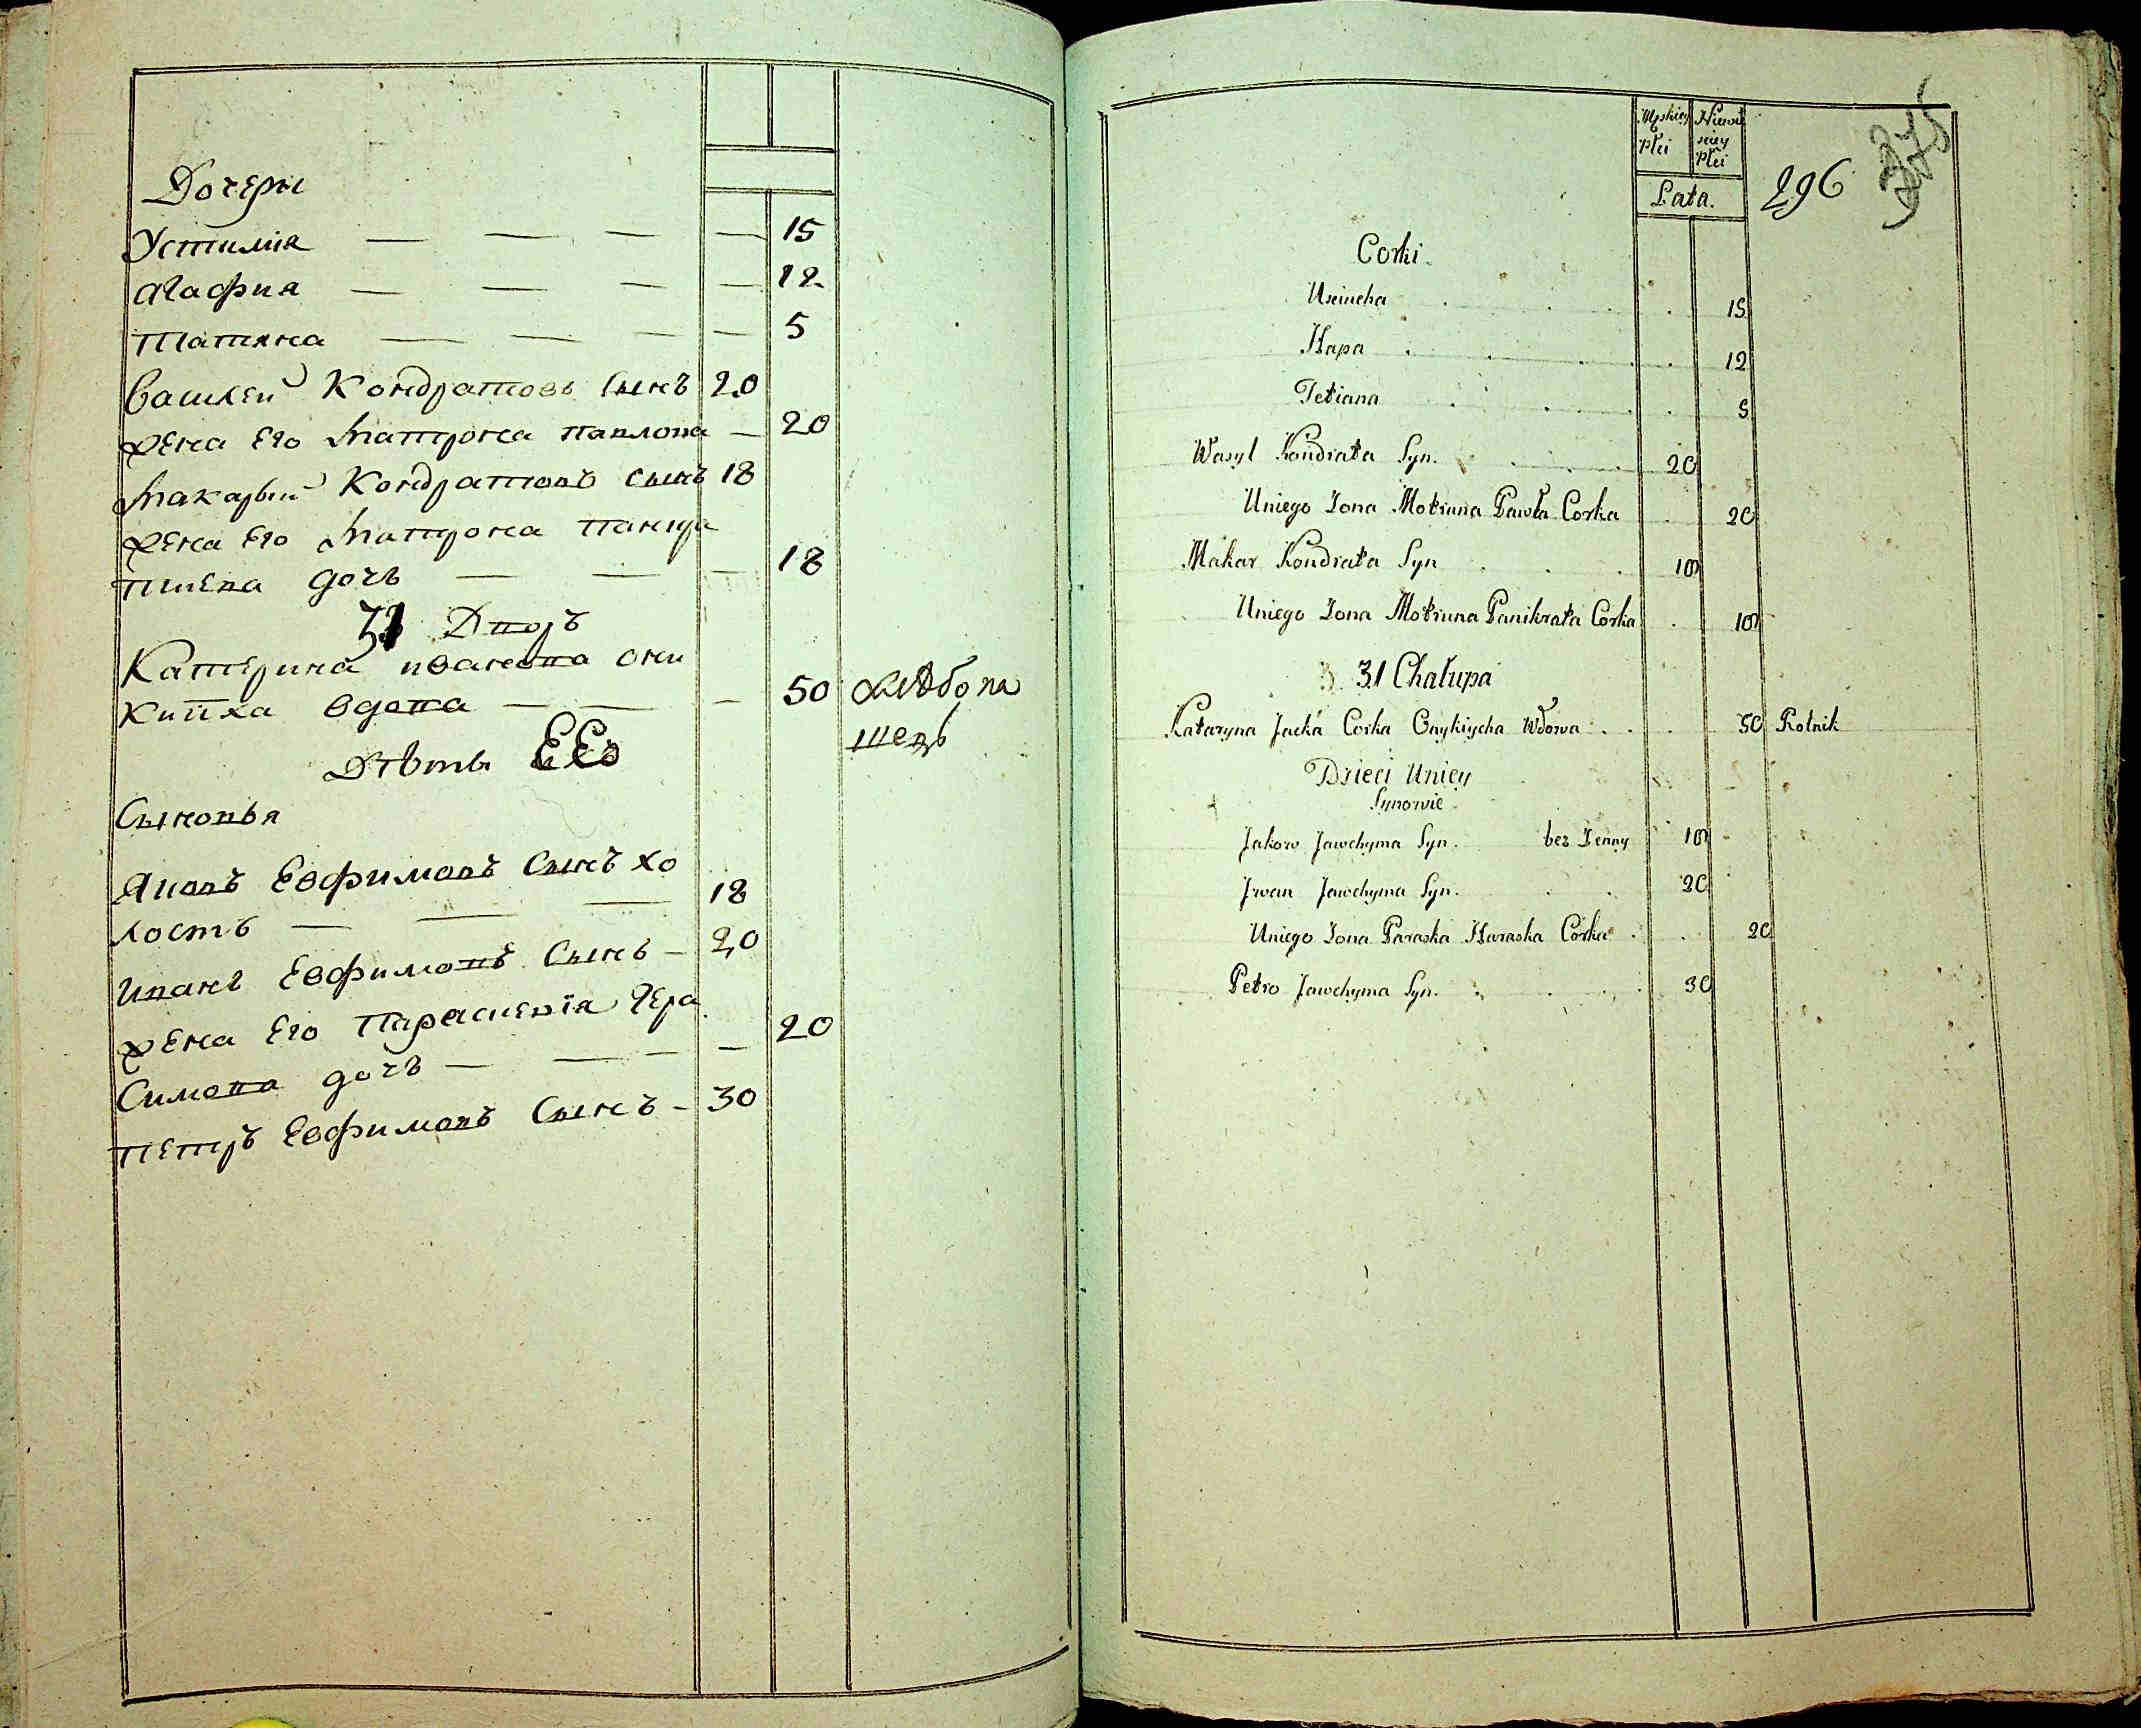 Дочеры
Устимія 15
Агафия 12
Татяна 5
Василей Кондратовъ сынъ 20
жена Его Матрона Павлова 20
Макарый Кондратовъ сынъ 18
жена Его Матрона Панкра
тиева дочь 18
31 Дворъ
Катерина ивановна они
Кииха вдова 50 хлѣбопа
шецъ
Дѣты ЕЕо
Сыновья
Яковъ Евфимовъ Сынъ хо
лостъ 18
Иванъ Евфимовъ Сынъ 20
жена Его Парасиевія Гера
Симова дочь 20
Петръ Евфимовъ Сынъ 30
Męskiey Płci Niewieściey Płci
Lata.
296
Corki
15
Hapa 12
Tetiana 5
Wasyl Kondrata Syn. 20
Uniego Zona Motruna Pawła Corka 20
Makar Kondrata Syn 18
Uniego Zona Motruna Panikrata Corka 18
31 Chałupa
Kataryna Jacka Corka Onykiycha Wdowa 50 Rolnik
Dzieci Unicy
Synowie
Jakow Jawchyma Syn. bez Zenny 18
Jwan Jawchyma Syn. 20
Uniego Zona Paraska Haraska Corka 20
Petro Jawchyma Syn. 30